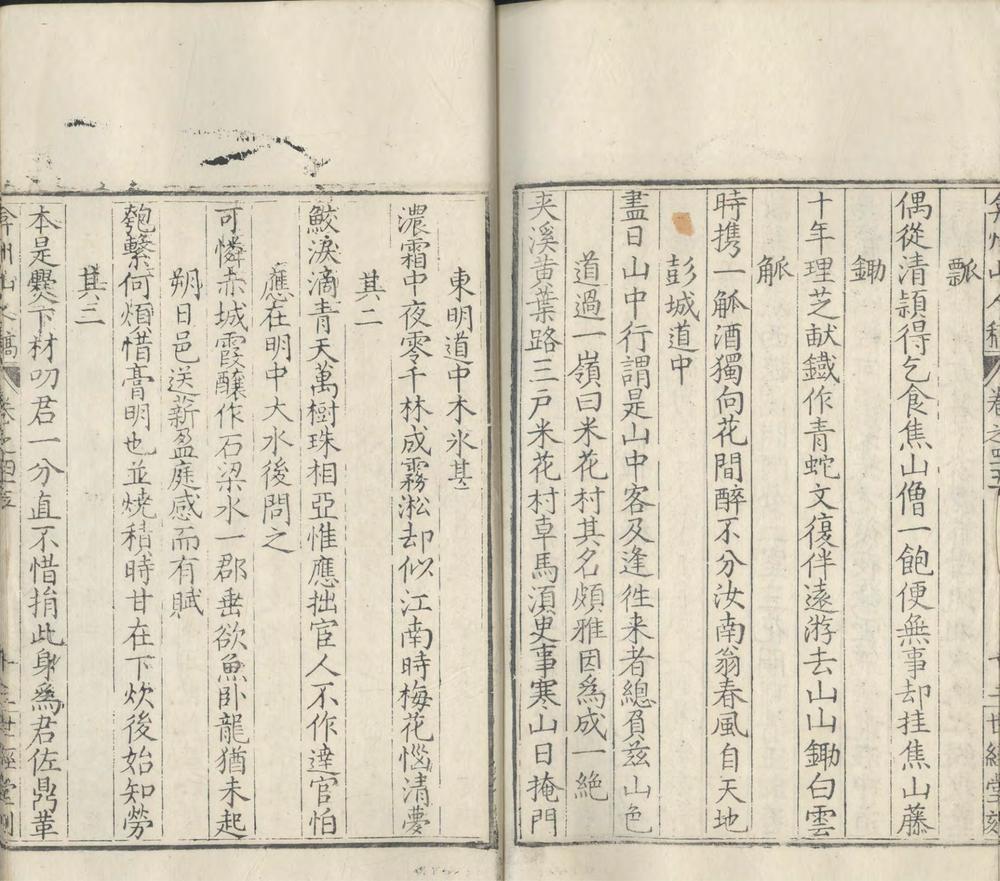 弇州山人稿 卷之四五 十二 世經堂刻
瓢
偶從清頴得乞食焦山僧一飽便無事却挂焦山藤
鋤
十年理芝献鐡作青蛇文復伴遠游去山山鋤白雲
觚
時携一觚酒獨向花間醉不分汝南翁春風自天地
彭城道中
盡日山中行謂是山中客及逢徃来者總負兹山色
道過一嶺曰米花村其名頗雅因爲成一絶
夹溪黄葉路三戸米花村卓馬湏㬰事寒山日掩門
東明道中木氷其一
濃霜中夜零千林成霧淞却似江南時梅花惱清夢
其二
鮫淚滴青天萬樹珠相亞惟應拙宦人不作達官怕
應在明中大水後問之
可憐赤城霞釀作石梁水一郡垂欲魚卧龍猶未起
朔日邑送薪盈庭感而有賦
匏繫何煩惜膏明也並焼積時甘在下炊後始知勞
其三
本是㸑下材叨君一分直不惜捐此身爲君佐鼎革
弇州山人稿 卷之四五 十二 世經堂刻